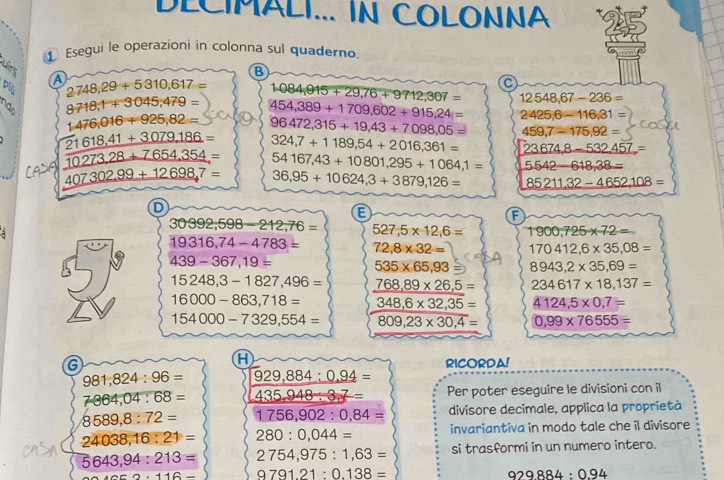 DECIMALI... IN COLONNA
25
1 Esegui le operazioni in colonna sul quaderno.
A
2748,29 + 5310,617 =
8718,1 + 3045,479 =
1476,016 + 925,82 =
21618,41 + 3079,186 =
10273,28 + 7654,354 =
407302,99 + 12698,7 =
CASA
B
1084,915 + 29,76 + 9712,307 =
454,389 + 1709,602 + 915,24 =
96472,315 + 19,43 + 7098,05 =
324,7 + 1189,54 + 2016,361 =
54167,43 + 10801,295 + 1064,1 =
36,95 + 10624,3 + 3879,126 =
C
12548,67 - 236 =
2425,6 - 116,31 =
459,7 - 175,92 =
23674,8 - 532,457 =
5542 - 618,38 =
85211,32 - 4652,108 =
D
30392,598 - 212,76 =
19316,74 - 4783 =
439 - 367,19 =
15248,3 - 1827,496 =
16000 - 863,718 =
154000 - 7329,554 =
E
527,5 x 12,6 =
72,8 x 32 =
535 x 65,93 =
768,89 x 26,5 =
348,6 x 32,35 =
809,23 x 30,4 =
CASA
F
1900,725 x 72 =
170412,6 x 35,08 =
8943,2 x 35,69 =
234617 x 18,137 =
4124,5 x 0,7 =
0,99 x 76555 =
G
981,824 : 96 =
7364,04 : 68 =
8589,8 : 72 =
24038,16 : 21 =
5643,94 : 213 =
CASA
H
929,884 : 0,94 =
435,948 : 3,7 =
1756,902 : 0,84 =
280 : 0,044 =
2754,975 : 1,63 =
9791,21 : 0,138 =
RICORDA!
Per poter eseguire le divisioni con il
divisore decimale, applica la proprietà
invariantiva in modo tale che il divisore
si trasformi in un numero intero.
929,884 : 0,94